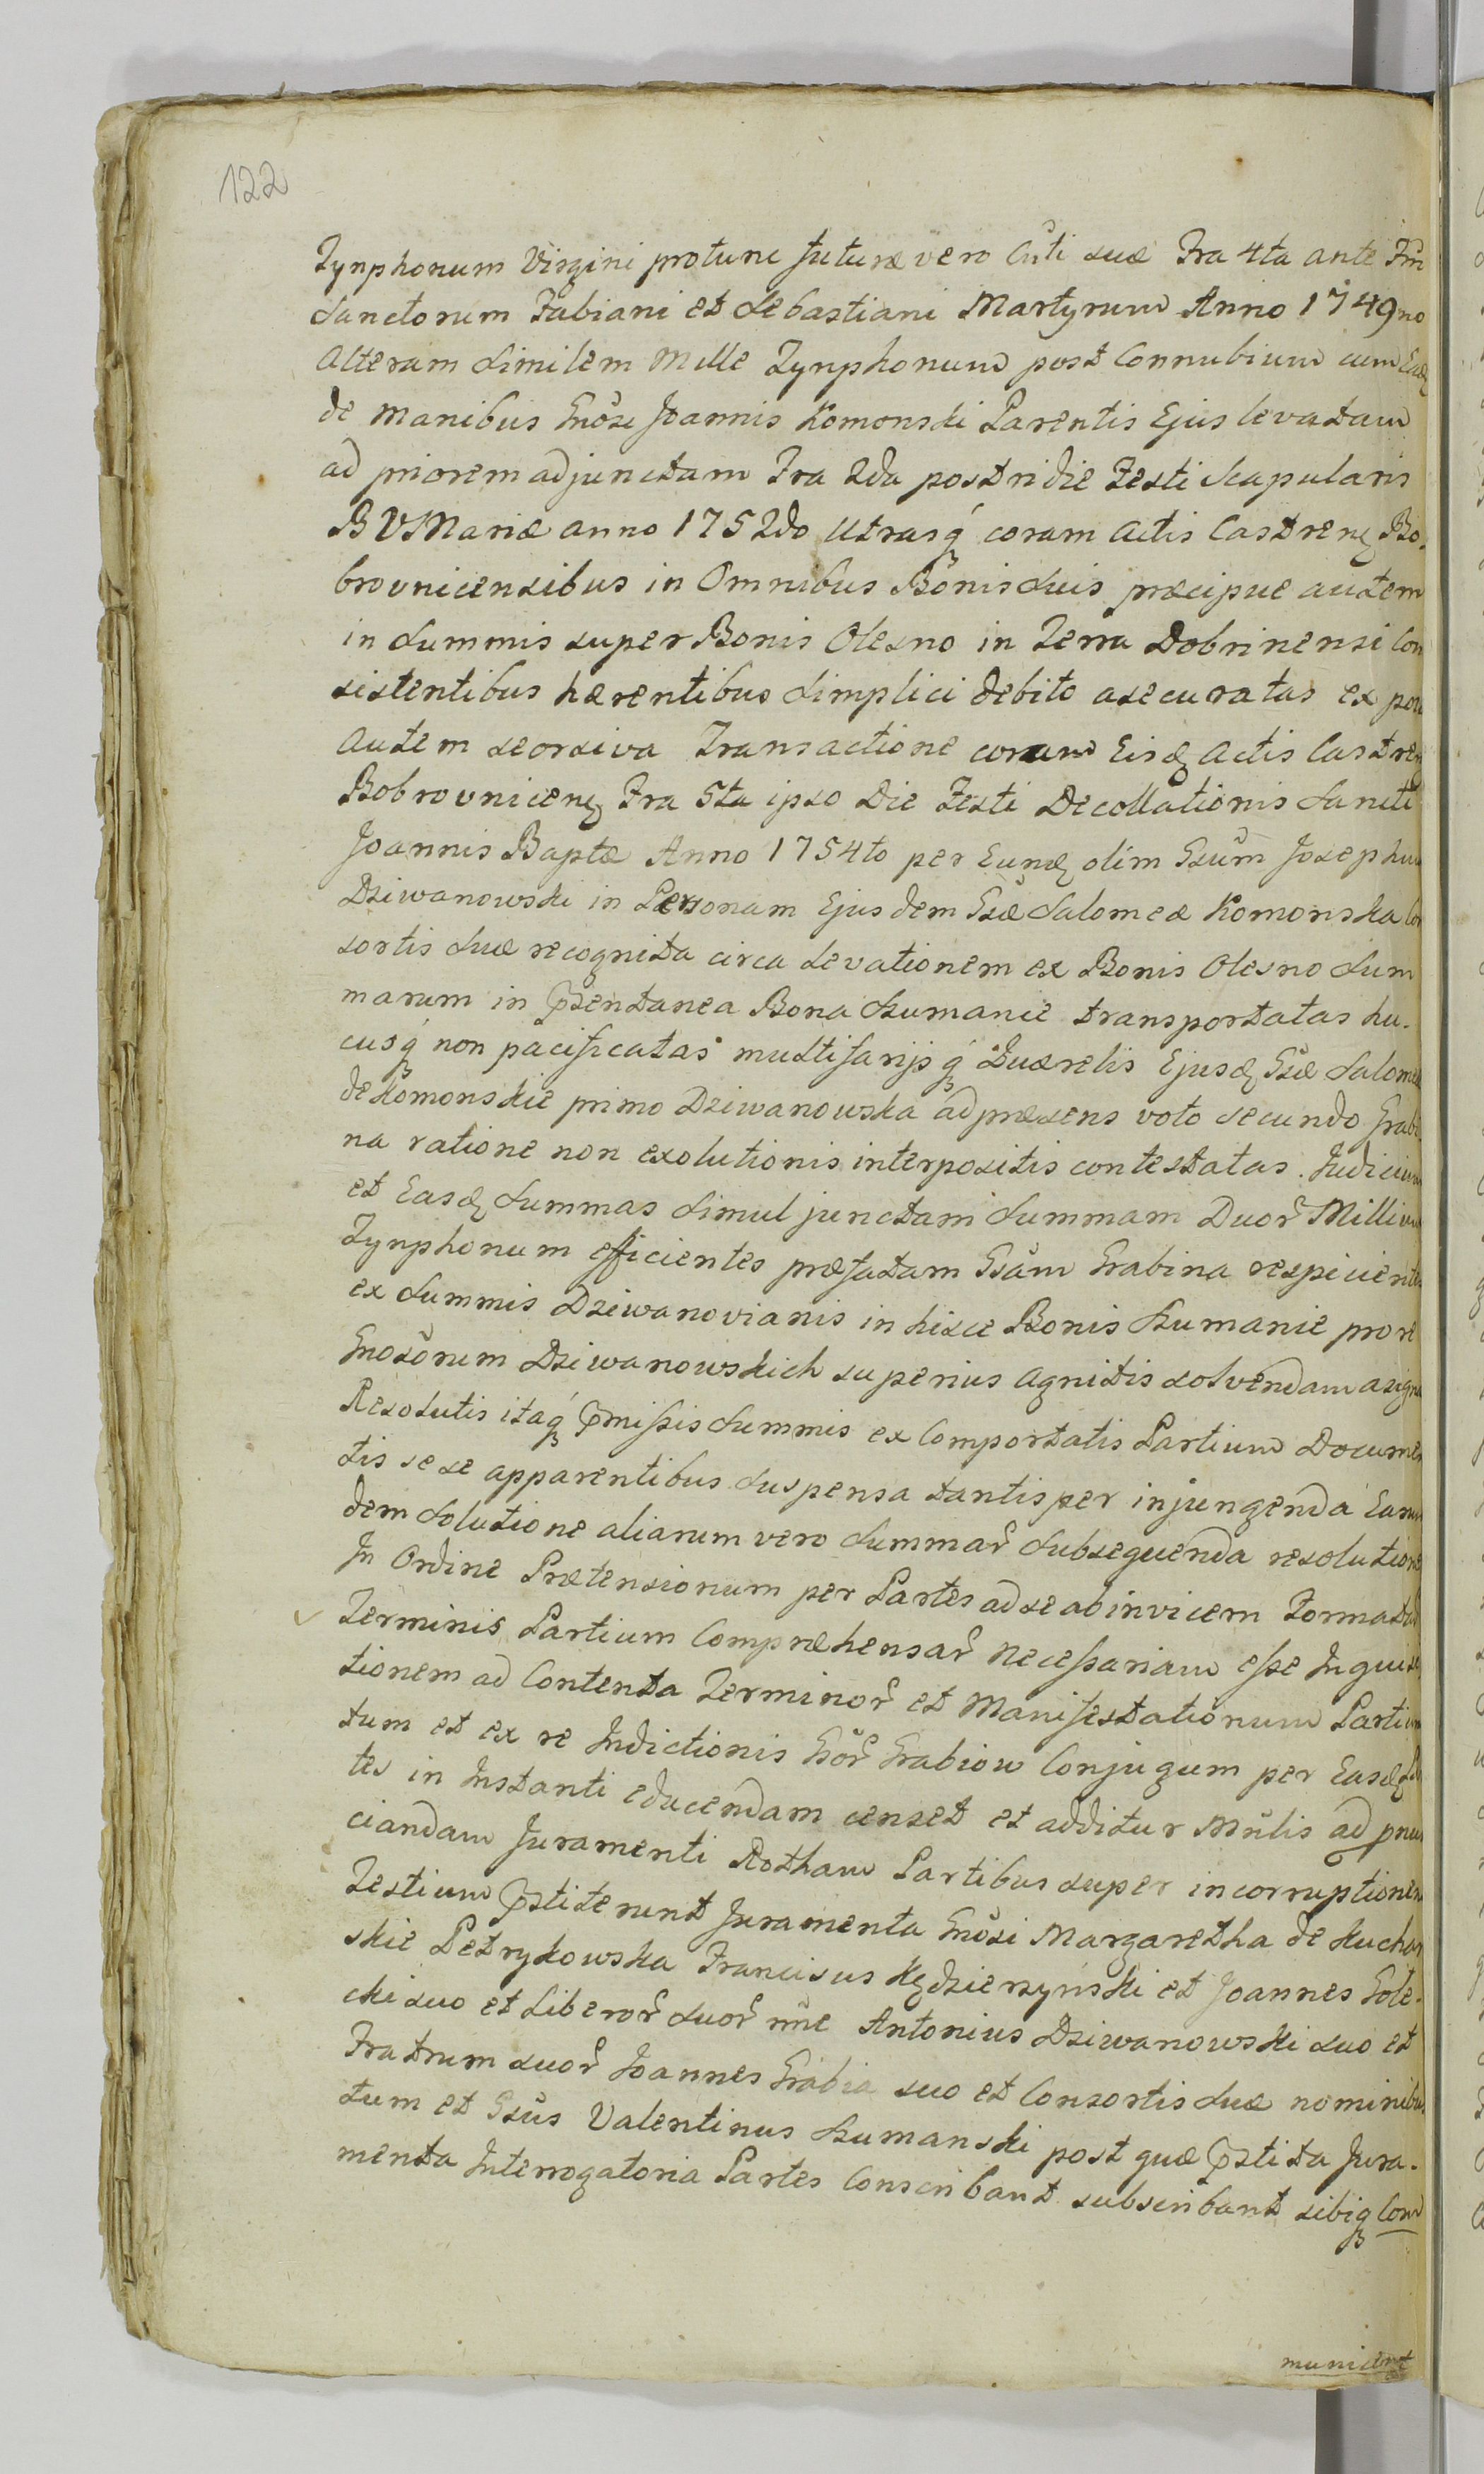 122
Tynphonum Virgini protunc futuræ vero Cnti suæ Fra 4ta ante Fm
Sanctorum Fabiani et Sebastiani Martyrum Anno 1749no
Alteram similem Mille Tynphonum post Connubium cum Eadꝫ
de manibus Gnosi Joannis Komonski Parentis Ejus levatam
ad priorem adjunctam Fra 2da postridie Festi Scapularis
BVMariæ anno 1752do utrasq́ꝫ coram Actis Castrenꝫ Bo-
brovnicensibus in Omnibus Bonis suis præcipue autem
in Summis super Bonis Olesno in Terra Dobrinensi Con
sistentibus hærentibus simplici debito asecuratas ex
Autem seorsiva Transactione coram Eisdꝫ Actis Castren
Bobrovnicenꝫ Fra 5ta ipso Die Festi Decollationis Sancti
Joannis Baptæ Anno 1754to per Eundꝫ olim Gsum Josephum
Dziwanowski in Personam Ejusdem Gsæ Salomeæ Komonska Con
sortis suæ recognita circa levationem ex Bonis Olesno Sum
marum in Pꝛsentanea Bona Szumanie transportatas hu-
cusq́ꝫ non pacificatas multifarijsq́ꝫ Quærelis Ejusdꝫ Gsæ Salomeæ
de Komonskie primo Dziwanowska ad præsens voto secundo Grabi
na ratione non exolutionis interpositis contestatas. Judicium
et Easdꝫ Summas simul junctam Summam Duor̃ Millium
Tynphonum efficientes præfatam Gsam Grabina respicientes
ex Summis Dziwanovianis in hisce Bonis Szumanie pro re
Gnosorum Dziwanowskich superius Agnitis solvendam asigna
Resolutis itaq́ꝫ Pꝛmissis Summis ex Comportatis Partium Documen
tis sese apparentibus suspensa tantisper injungenda Earun
dem Solutione aliarum vero Summar̃ subsequenda resolutione
In Ordine Prætensionum per Partes ad se ad invicem Format
Terminis Partium Compræhensar̃ necessariam esse Inquisi
tionem ad Contenta Terminor̃ et Manifestationum Partium
tum et ex re Indictionis Gsor̃ Grabiow Conjugum per Easdꝫ Par
tes in Instanti educendam censet et additur Mnlis ad pnun
ciandam Juramenti Rotham Partibus super incorruptionem
Testium Pꝛstiterunt Juramenta Gnosi Margaretha de Kuchar
skie Petrykowska Franciscus Kędzierzyński et Joannes Gole-
cki suo et Liberor̃ suor̃ nne Antonius Dziwanowski suo et
Fratrum suor̃ Joannes Grabia suo et Consortis suæ nominibus
tum et Gsus Valentinus Szumanski post quæ Pꝛstita Jura-
menta Interrogatoria Partes Conscribant subscribant sibiqꝫ Com
munient